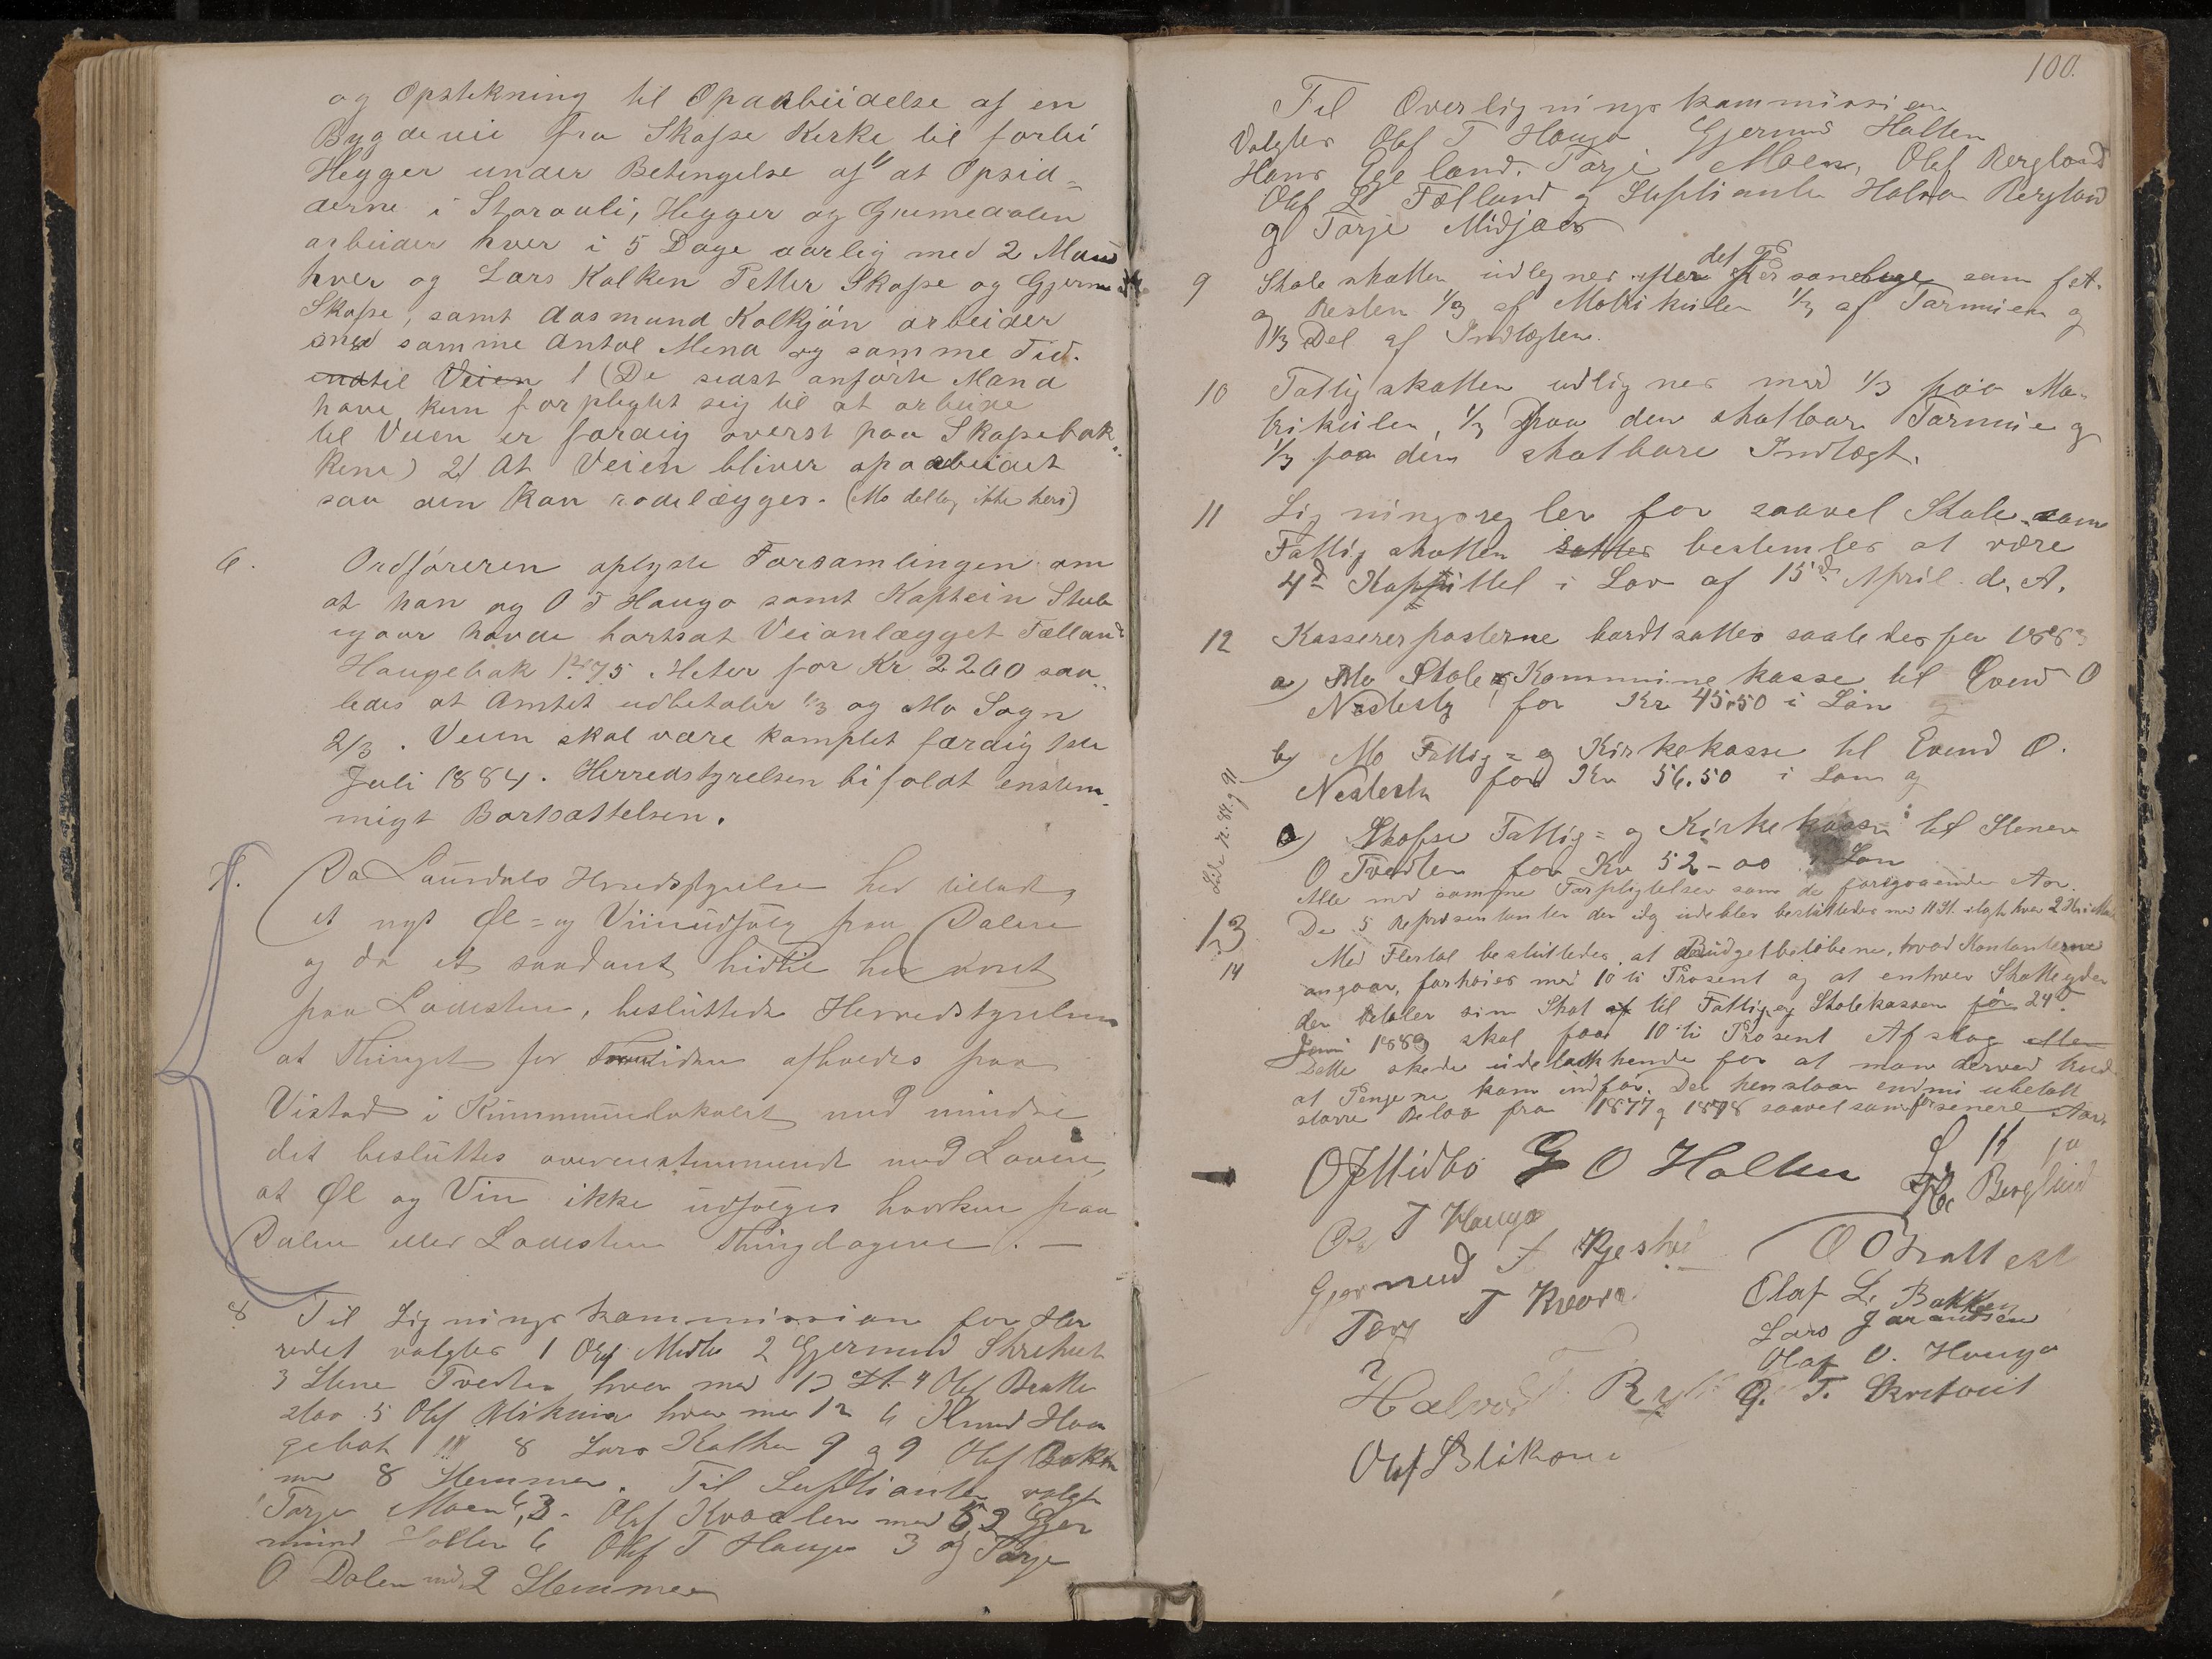 og Opstikning til Opaarbeidelse af en
Bygdevei fra Skafse Kirke til forbi
Hegger under Betingelse af 1/ at Opsid-
derne i Storouli, Hegger og Grimedalen
arbeider hver i 5 Dage aarlig med 2 Mand
hver og Lars Kalken Petter Skafse og Gjermund
Skafse, samt Aasmund Kolkjøn arbeider
med samme Antal Mend og samme Tid.
indtil Veien 1 (De sidst anførte Mænd
have kun forpligtet sig til at arbeide
til Veien er færdig øverst paa Skafsebak-
kene) 2/ At Veien bliver opaarbeidet
saa den kan rodelægges. (Mo deltog ikke heri)
6. Ordføreren oplyste Forsamlingen om
at han og O T Haugo samt Kaptein Stub
igaar havde bortsat Veianlægget Fælland
Haugebak 1275 Meter for Kr 2260 saa-
ledes at Amtet udbetaler 1/3 og Mo Sogn
2/3. Veien skal være komplet færdig 1ste
Juli 1884. Herredstyrelsen bifaldt enstem-
migt Bortsættelsen.
7. Da Laurdals Herredsstyrelse har tilladt
et nyt Øl- og Viinudsalg paa Dalen
og da et saadant hidtil har været
paa Lastein, besluttede Herredstyrelsen
at Thinget for Fremtiden afholdes paa
Vistad i Kommunelokalet med mindre
det besluttes overensstemmende med Loven,
at Øl og Vin ikke udsælges hverken paa
Dalen eller Lastein Thingdagene. —
8 Til Ligningskommission for Her
redet valgtes 1 Olaf Midbø 2 Gjermund Skrehvet
3 Stene Tvedten hver med 13 St. 4 Olaf Bratte
stav 5 Olaf Blikom hver med 12 6 Knud Hau
gebak 8 Lars Kalken 9 og 9 Olaf Bakken
med 8 Stemmer. Til Suppleanter valgte
Torje Moen 6, 3. Olaf Kvaalen med 5 2 Gjer
mund Holten 6 Olaf T Haugo 3 og Torje
O Dalen med 2 Stemmer
100.
Til Overligningskommission
valgtes Olaf T Haugo Gjermund Holten
Hans Egeland, Torje Moen, Olaf Bergland
Olaf L Fælland og Supleanter Halvor Bergland
og Torje Midjaas
9 Skoleskatten udlignes efter det Personelige som før.
og Resten 1/3 af Matrikulen 1/3 af Formuen og
1/3 Del af Indtægten.
10 Fattigskatten udlignes med 1/3 paa Ma-
trikulen, 1/3 Paa den skatbare Formue og
1/3 paa den skatbare Indtægt.
11 Ligningsregler for saavel Skole som
Fattigskatten sattes bestemtes at være
4de Kapittel i Lov af 15de April d. A.
12 Kassererposterne bortsattes saaledes for 1883
a) Mo Skole & Kommunekasse til Evend O
Nesteby for Kr 45.50 i Løn
b) Mo Fattig- og Kirkekasse til Evend O.
Nesteby for Kr 56.50 i Løn og
c) Skafse Fattig- og Kirkekasse til Stener
O Tvedten for Kr 52-00 i Løn
Alle med samme Forpligtelser som de foregaaende Aar.
13 De 5 Representanter der idag udeblev besluttedes med 11 St. ilagt hver 2 Kr i Mulkt
14 Med Flertal besluttedes, at Budgetbeløbene, hvad Kontanterne
angaar, forhøies med 10 ti Prosent og at enhver Skatteyder
der betaler sin Skat af til Fattig og Skolekassen før 24de
Juni 1883 skal faa 10 ti Prosent Afslag eller
Dette skede udelukkende for at man derved kunde
at Pengene kom ind før. Der henstaar endnu ubetalt
større Beløb fra 1877 og 1878 saavel som for senere Aar.
O J Midbø G O Holten
H. Bergland
O T Haugo
Gjermund
O O Bratte
Torj T Kvaa
Olaf L. Bakken
Lars Jarandsen
Olaf O. Haugo
Halvor
G. T. Skretveit
Olaf Blikom